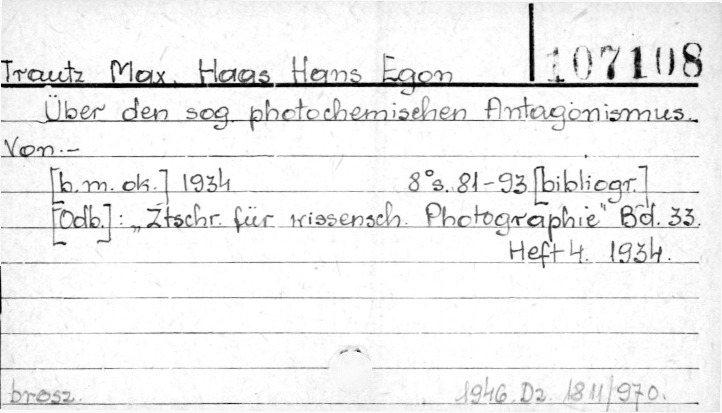 107108
Trautz Max. Haas Hans Egon
Über den sog photochemischen Antagonismus.
Von.-
[b.m. ok.] 1934 8° s. 81-93 [bibliogr.]
[Odb.]: „Ztschr. für wissensch. Photographie" Bd. 33.
Heft 4. 1934.
brosz. 1946. Dz. 1811/970.